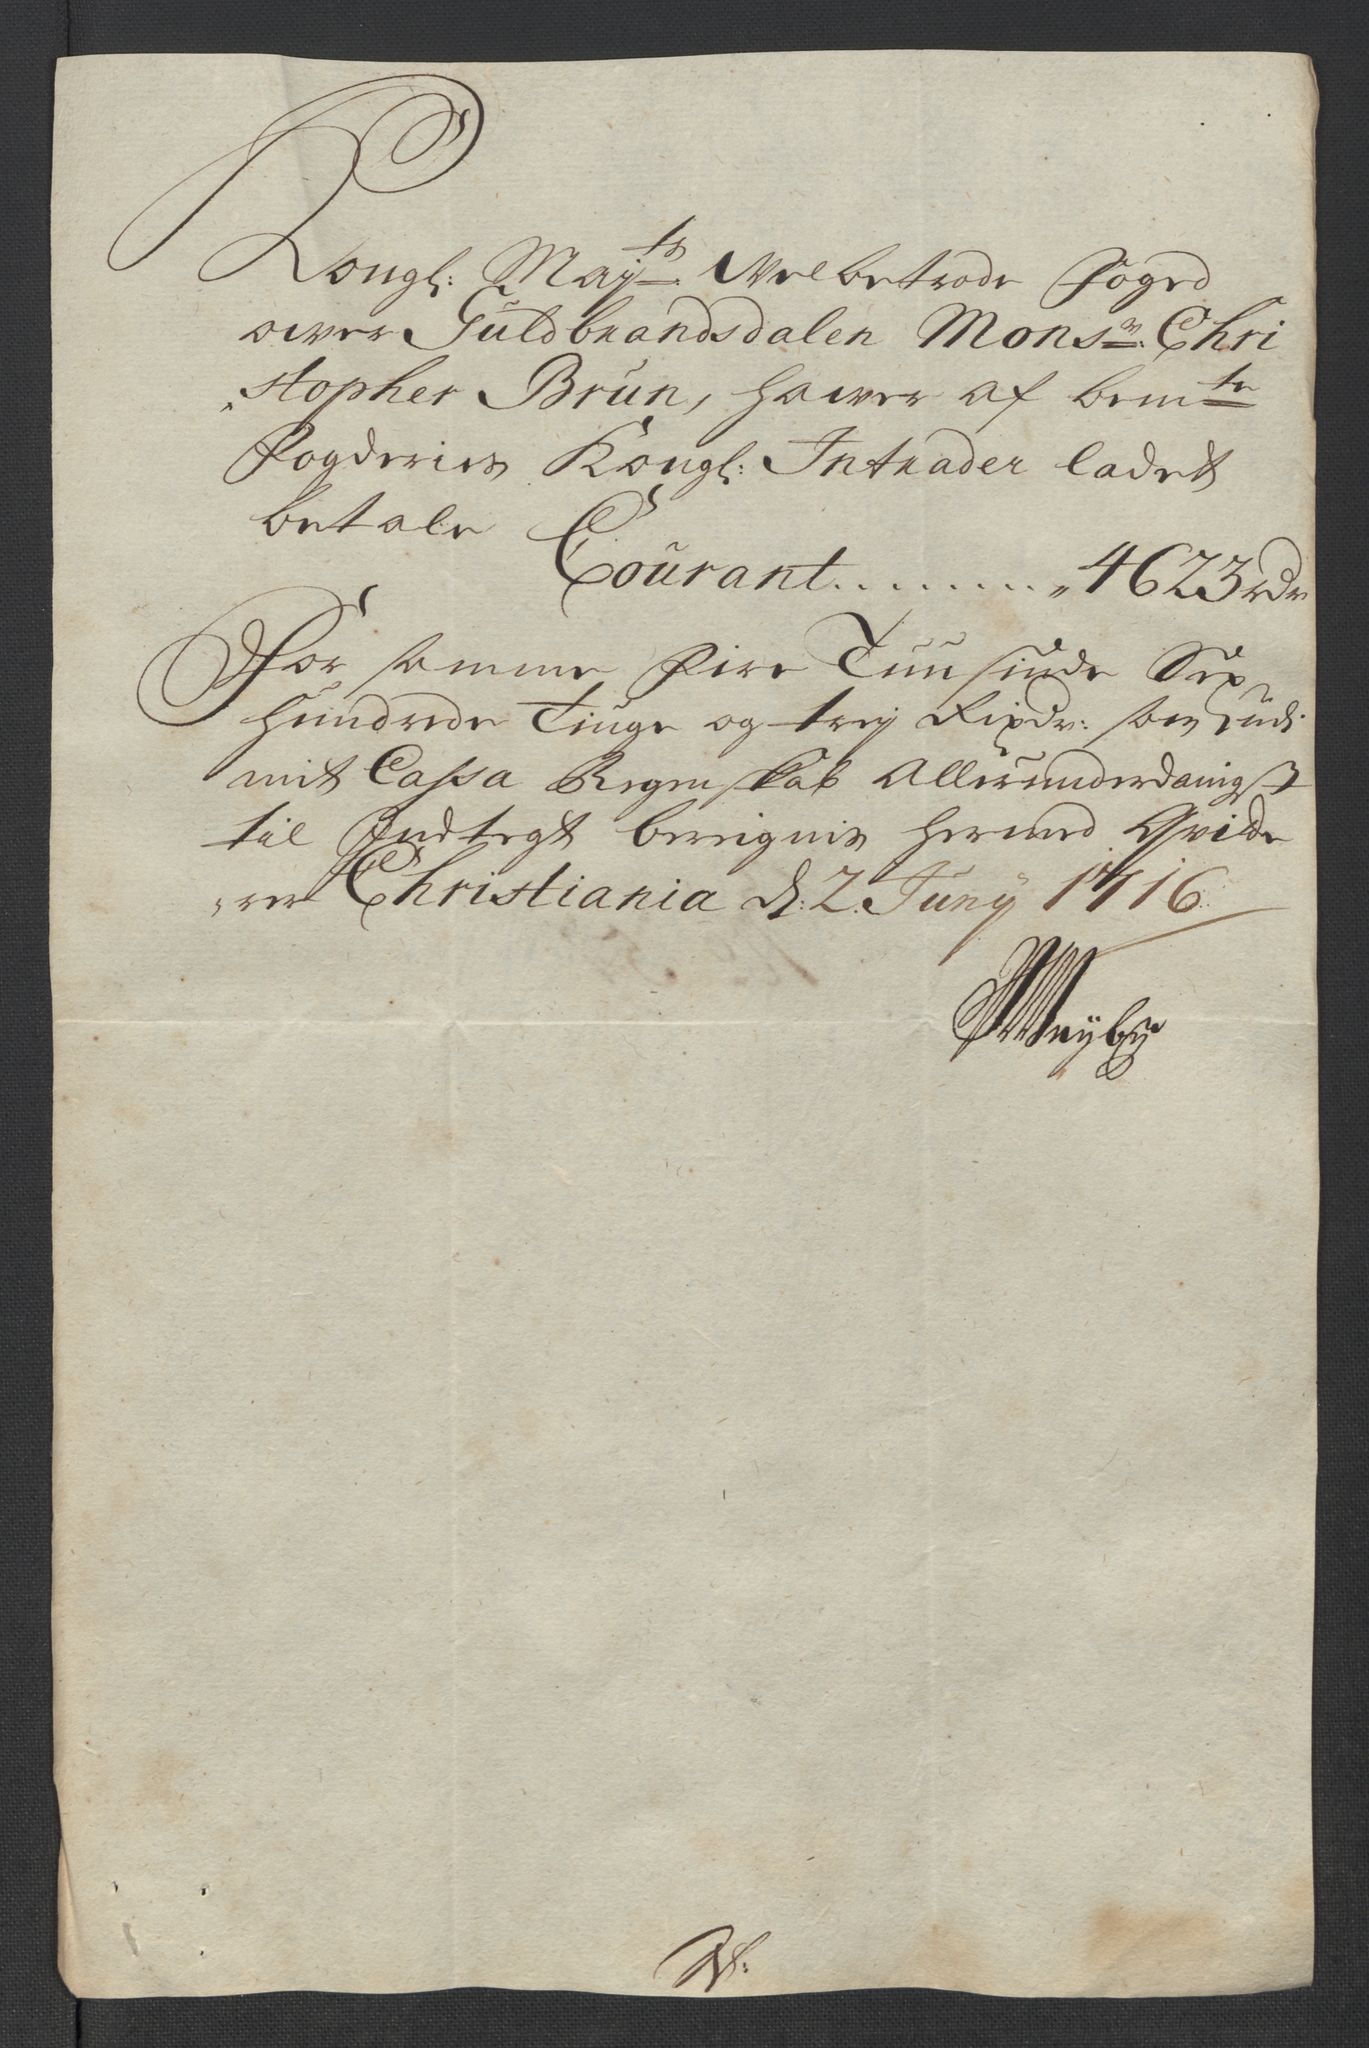 Kongl: Maÿ.ts Velbetrode Foged
over Guldbrandsdalen Monsr. Chri
„stopher Brun, hawer af bemte
Fogderies Kongl: Intrader ladet
betale
Courant.........„ 4623 rdr
For samme Fire Tuusinde Sex
hundrede Tiuge og treÿ Rixdr: som udi
mit Cassa Regenskab Allerunderdanigst
til Indtegt bereignis hermed Qvitte
„rer Christiania d: 2. Junÿ 1716.